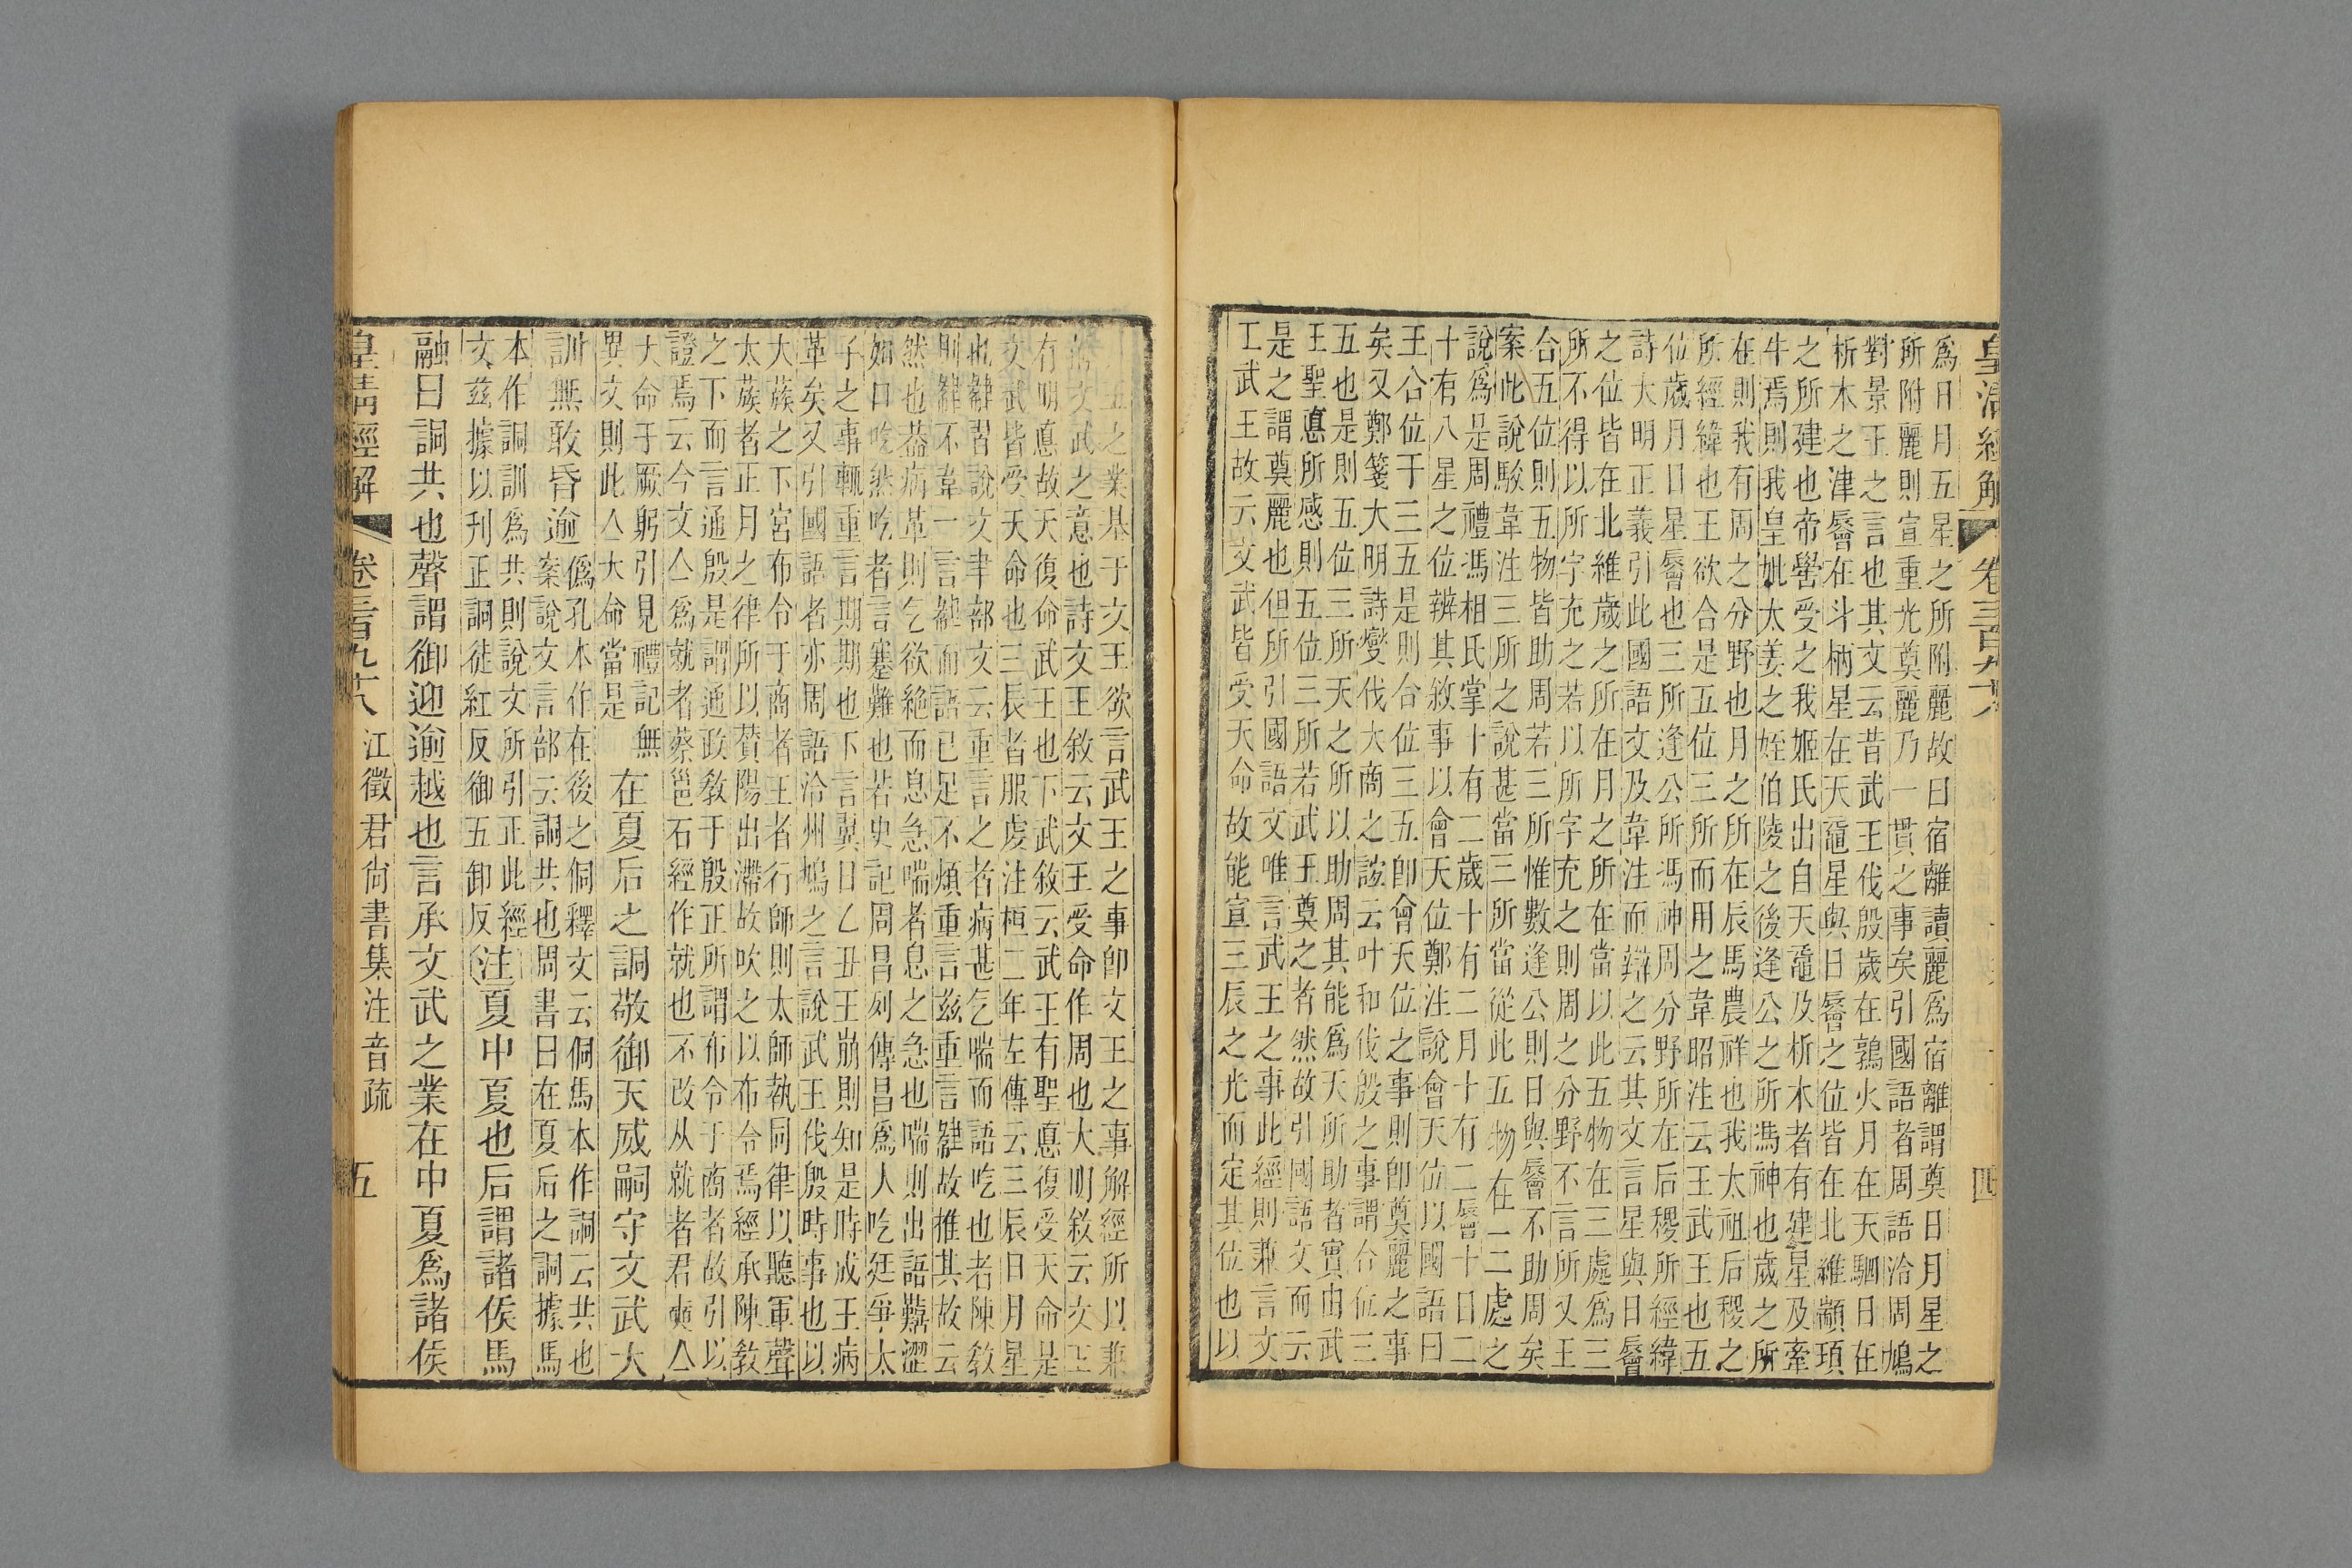 皇清經解 卷三百九十八 四
爲日月五星之所附麗故曰宿離讀麗爲宿離謂奠日月星之
所附麗則宣重光奠麗乃一貫之事矣引國語者周語泠周鳩
對景王之言也其文云昔武王伐殷歲在鶉火月在天駟日在
析木之津辰在斗柄星在天黿星與日辰之位皆在北維顓頊
之所建也帝嚳受之我姬氏出自天黿及析木者有建星及牽
牛焉則我皇妣太姜之姪伯陵之後逢公之所馮神也歲之所
在則我有周之分野也月之所在辰馬農祥也我太祖后稷之
所經緯也王欲合是五位三所而用之韋昭注云王武王也五
位歲月日星辰也三所逢公所馮神周分野所在后稷所經緯
詩大明正義引此國語文及韋注而辯之云其文言星與日辰
之位皆在北維歲之所在月之所在當以此五物在三處爲三
所不得以所字充之若以所字充之則周之分野不言所又王
合五位則五物皆助周若三所惟數逢公則日與辰不助周矣
案此說駮韋注三所之說甚當三所當從此五物在一二處之
說爲是周禮馮相氏掌十有二歲十有二月十有二辰十日二
十有八星之位辨其敘事以會天位鄭注說會天位以國語曰
王合位于三五是則合位三五卽會天位之事則卽奠麗之事
矣又鄭箋大明詩燮伐大商之誼云叶和伐殷之事謂合位三
五也是則五位三所天之所以助周其能爲天所助者實由武
王聖悳所感則五位三所若武王奠之者然故引國語文而云
是之謂奠麗也但所引國語文唯言武王之事此經則兼言文
工武王故云文武皆受天命故能宣三辰之光而定其位也以
三五之業基于文王欲言武王之事卽文王之事解經所以兼
文武之意也詩文王敘云文王受命作周也大明敘云文王
有明悳故天復命武王也下武敘云武王有聖悳復受天命是
文武皆受天命也三辰者服虔注桓二年左傳云三辰日月星
也肄習說文聿部文云重言之者病甚乞喘而語吃也者陳敎
則肄不韋一言肄而語已足不煩重言茲重言肄故推其故云
然也葢病革則乞欲絕而息急喘者息之急也喘則出語囏澀
如口吃然吃者言蹇難也若史記周昌列傳昌爲人吃廷爭太
子之事輒重言期期也下言翼日乙丑王崩則知是時成王病
革矣又引國語者亦周語泠州鳩之言說武王伐殷時事也以
大蔟之下宮布令于商者王者行師則太師執同律以聽軍聲
太蔟者正月之律所以贊陽出滯故吹之以布令焉經承陳敎
之下而言通殷是謂通政敎于殷正所謂布令于商者故引以
證焉云今文亼爲就者蔡邕石經作就也不改从就者君奭亼
大命于厥躬引見禮記無
異文則此亼大命當是
在夏后之詷敬御天威嗣守文武大
訓無敢昏逾
僞孔本作在後之侗釋文云侗馬本作詷云共也
案說文言部云詷共也周書曰在夏后之詷據馬
本作詷訓爲共則說文所引正此經
文茲據以刊正詷徒紅反御五卸反
注夏中夏也后謂諸矦馬
融曰詷共也聲謂御迎逾越也言承文武之業在中夏爲諸矦
皇清經解 卷三百九十八 江徵君尙書集注音疏 五